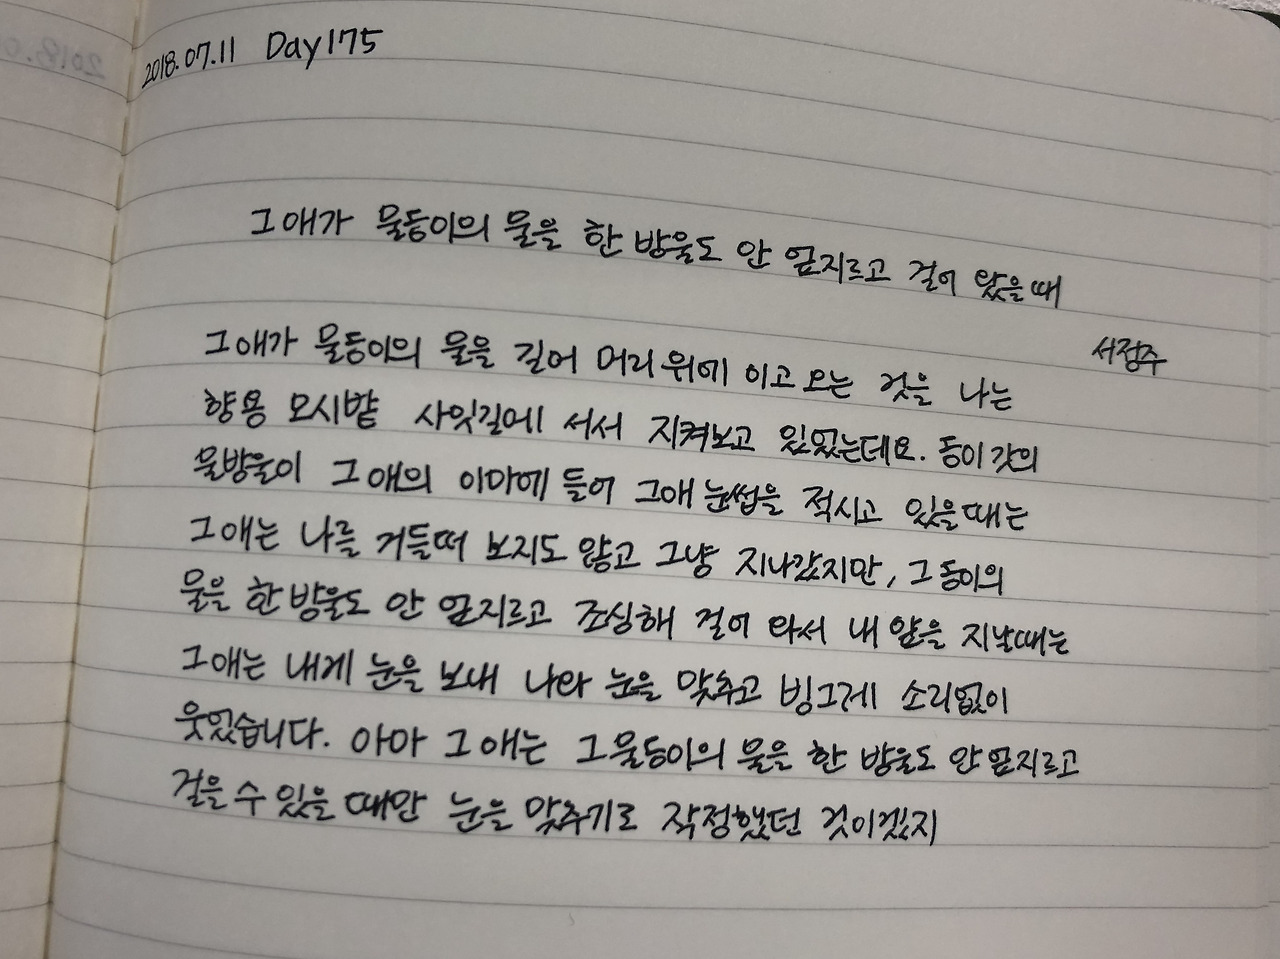 2018.07.11 Day175
그애가 물동이의 물을 한 방울도 안 엎지르고 걸어 왔을때
서정주
그애가 물동이의 물을 길어 머리위에 이고 오는 것을 나는
항용 모시밭 사잇길에 서서 지켜보고 있었는데요. 동이 갓의
물방울이 그애의 이마에 들어 그애 눈썹을 적시고 있을때는
그애는 나를 거들떠 보지도 않고 그냥 지나갔지만, 그 동이의
물을 한 방울도 안 엎지르고 조심해 걸어 와서 내 앞을 지날때는
그애는 내게 눈을 보내 나와 눈을 맞추고 빙그레 소리없이
웃었습니다. 아마 그 애는 그 물동이의 물을 한 방울도 안 엎지르고
걸을 수 있을 때만 눈을 맞추기로 작정했던 것이겠지